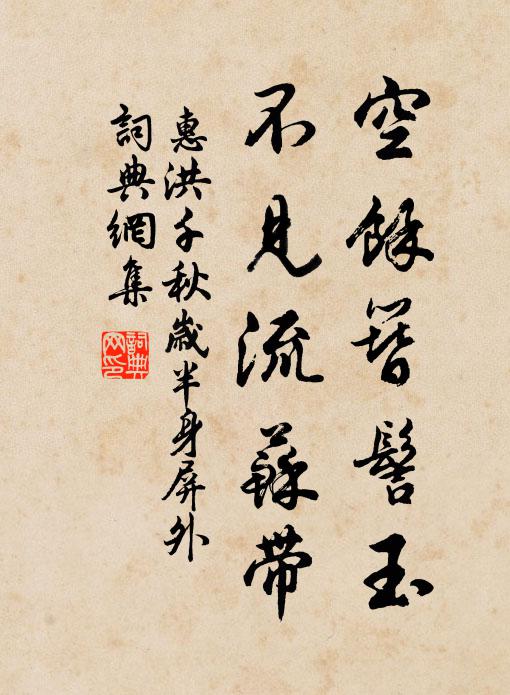 空餘簪髻玉
不見流蘇帶
惠洪千秋歲半身屏外
詞典網集
詞典網印